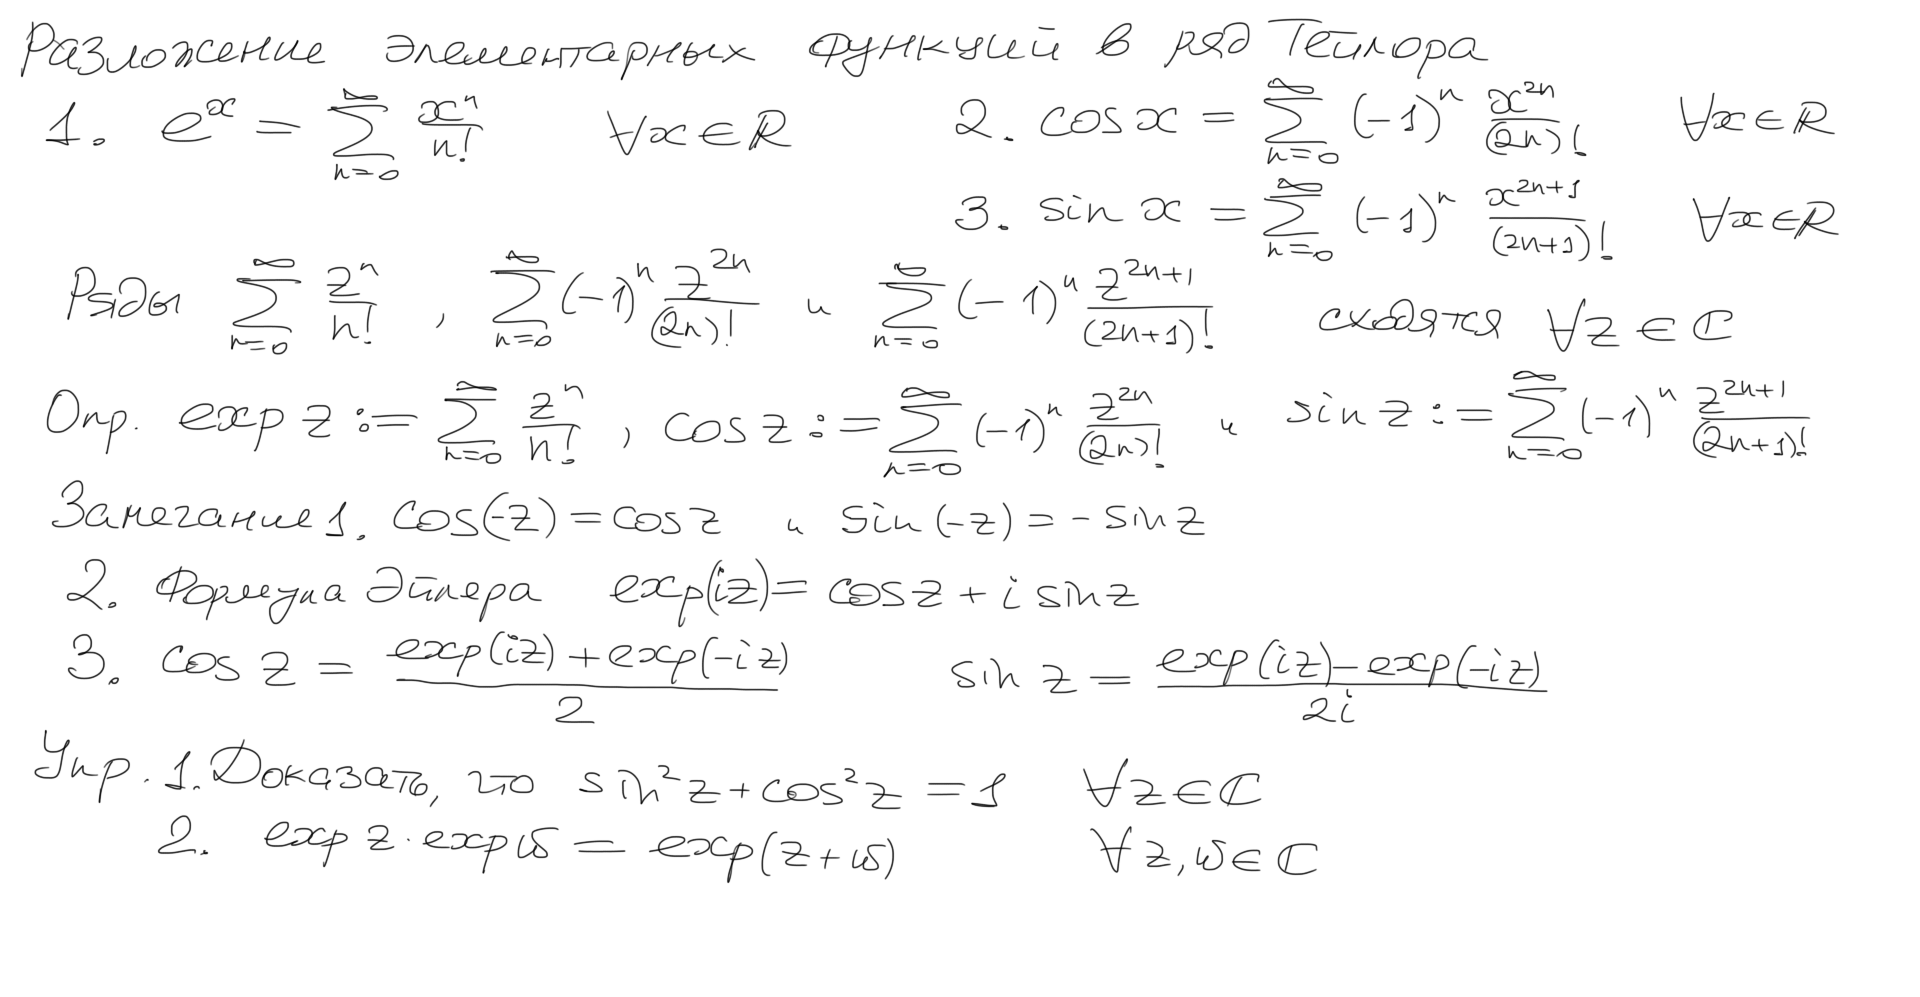 Разложение элементарных функций в ряд Тейлора
1. e^x = ∑_{n=0}^{∞} x^n/n! ∀x∈R 2. cos x = ∑_{n=0}^{∞} (-1)^n x^{2n}/(2n)! ∀x∈R
3. sin x = ∑_{n=0}^{∞} (-1)^n x^{2n+1}/(2n+1)! ∀x∈R
Ряды ∑_{n=0}^{∞} z^n/n! , ∑_{n=0}^{∞} (-1)^n z^{2n}/(2n)! и ∑_{n=0}^{∞} (-1)^n z^{2n+1}/(2n+1)! сходятся ∀z∈ℂ
Опр. exp z := ∑_{n=0}^{∞} z^n/n! , cos z := ∑_{n=0}^{∞} (-1)^n z^{2n}/(2n)! и sin z := ∑_{n=0}^{∞} (-1)^n z^{2n+1}/(2n+1)!
Замечание 1. cos(-z) = cos z и sin(-z) = - sin z
2. Формула Эйлера exp(iz) = cos z + i sin z
3. cos z = (exp(iz) + exp(-iz))/2 sin z = (exp(iz) - exp(-iz))/2i
Упр. 1. Доказать, что sin²z + cos²z = 1 ∀z∈ℂ
2. exp z · exp w = exp(z+w) ∀z, w∈ℂ